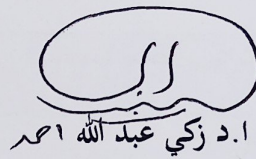 ا.د زكي عبد الله احمد